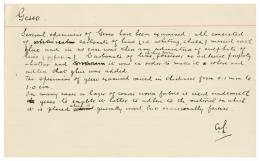 Gesso
Several specimens of Gesso have been examined. All consisted
of carbonate of lime (i.e. whiting, chalk) mixed with
glue and in no case was there any admixture of sulphate of
lime (gypsum). Carbonate of lime possesses no adhesive property
whatever and in order to make it a cohesive
solid that glue was added.
The specimens of gesso examined varied in thickness from 0.1 mm to
1.0 cm.
In many cases a layer of coarse woven fabric is used underneath
the gesso to enable it better to adhere to the material on which
it is placed generally wood, but occasionally